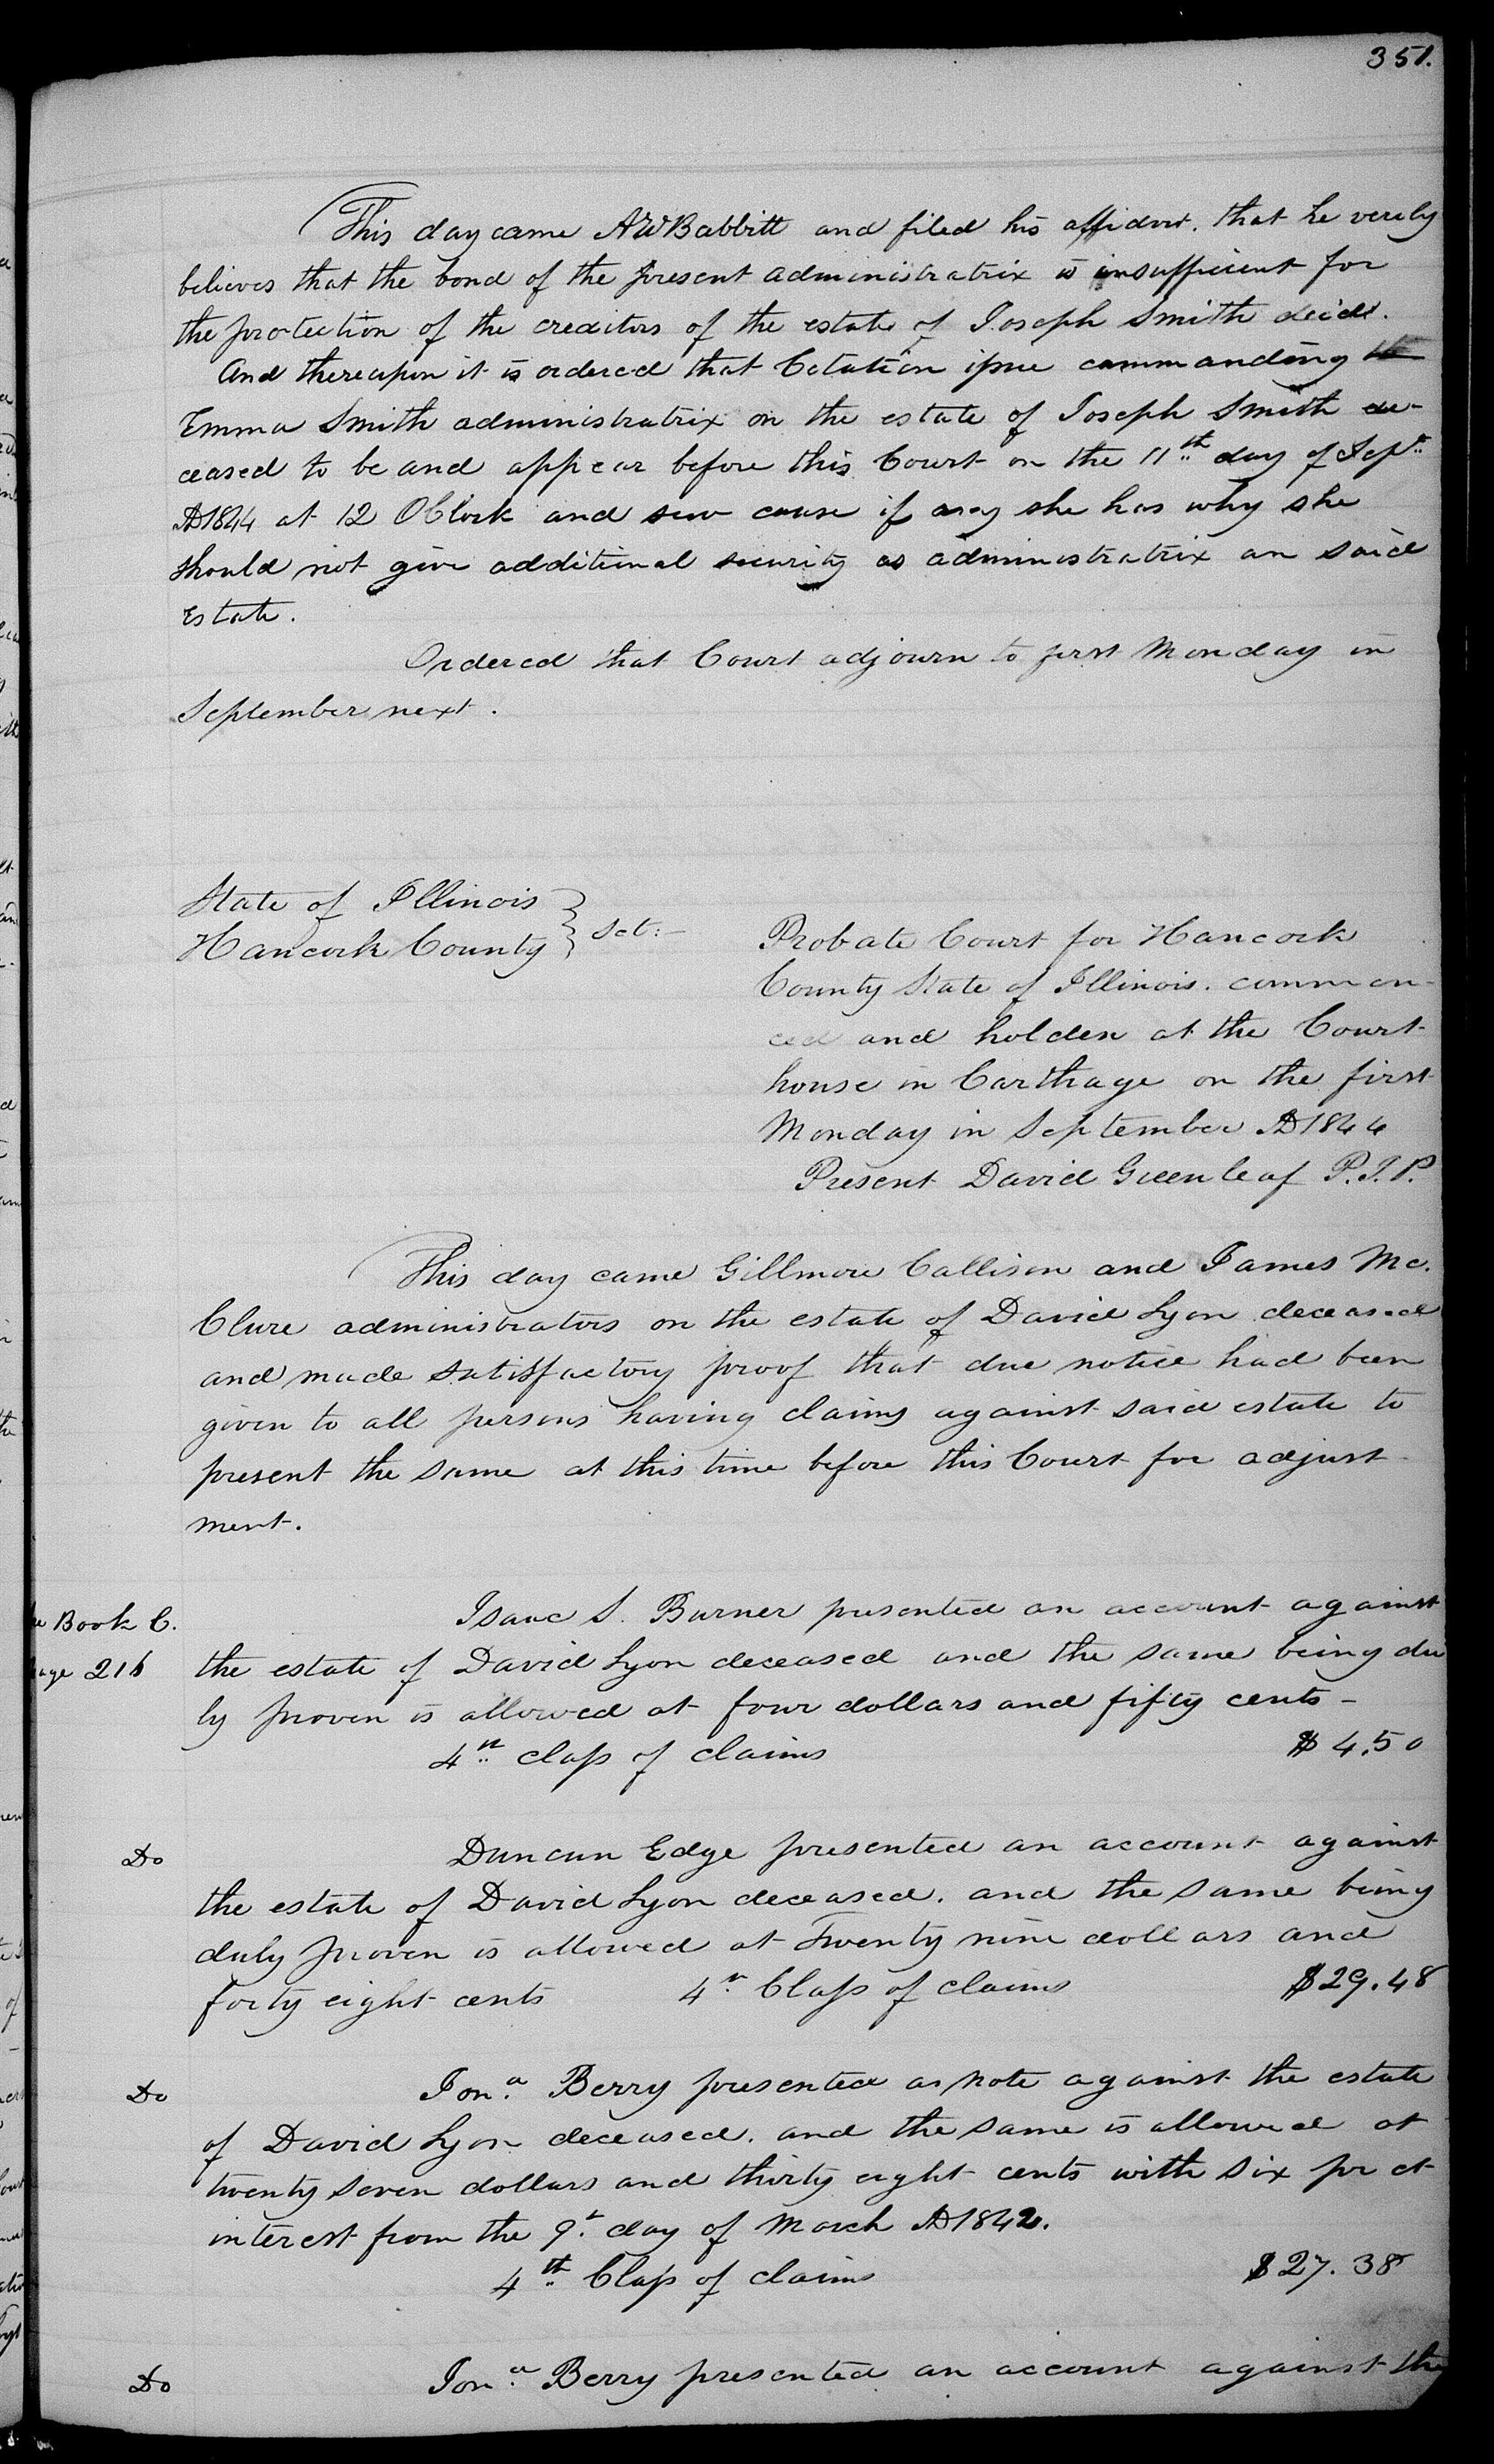 351.
This day came AW Babbitt and filed his affidavt. that he verily
believes that the bond of the present administratrix is insufficient for
the protection of the creditors of the estate of Joseph Smith decd.
And thereupon it is ordered that Citation issue commanding
Emma Smith administratrix on the estate of Joseph Smith de-
ceased to be and appear before this Court on the 11th day of Sept
AD1844 at 12 OClock and sew cause if any she has why she
should not give additional security as administratrix on said
Estate.
Ordered that Court adjourn to first Monday in
September next.
State of Illinois
Hancock County } Sct:-
Probate Court for Hancock
County State of Illinois. commen-
ced and holden at the Court
house in Carthage on the first
Monday in September AD1844
Present David Greenleaf P.J.P.
This day came Gillmore Callison and James Mc.
Clure administrators on the estate of David Lyon deceased
and made satisfactory proof that due notice had been
given to all persons having claims against said estate to
present the same at this time before this Court for adjust-
ment.
Book C. Isaac S. Burner presented an account against
216 the estate of David Lyon deceased and the same being du
ly proven is allowed at four dollars and fifty cents -
4th class of claims $4.50
Do Duncan Edge presented an account against
the estate of David Lyon deceased. and the same being
duly proven is allowed at Twenty nine dollars and
forty eight cents 4th Class of claims $29.48
Do Jona. Berry presented a note against the estate
of David Lyon deceased. and the same is allowed at
twenty seven dollars and thirty eight cents with six pr ct
interest from the 9th day of March AD1842.
4th Class of claims $27.38
Do Jona. Berry presented an account against the